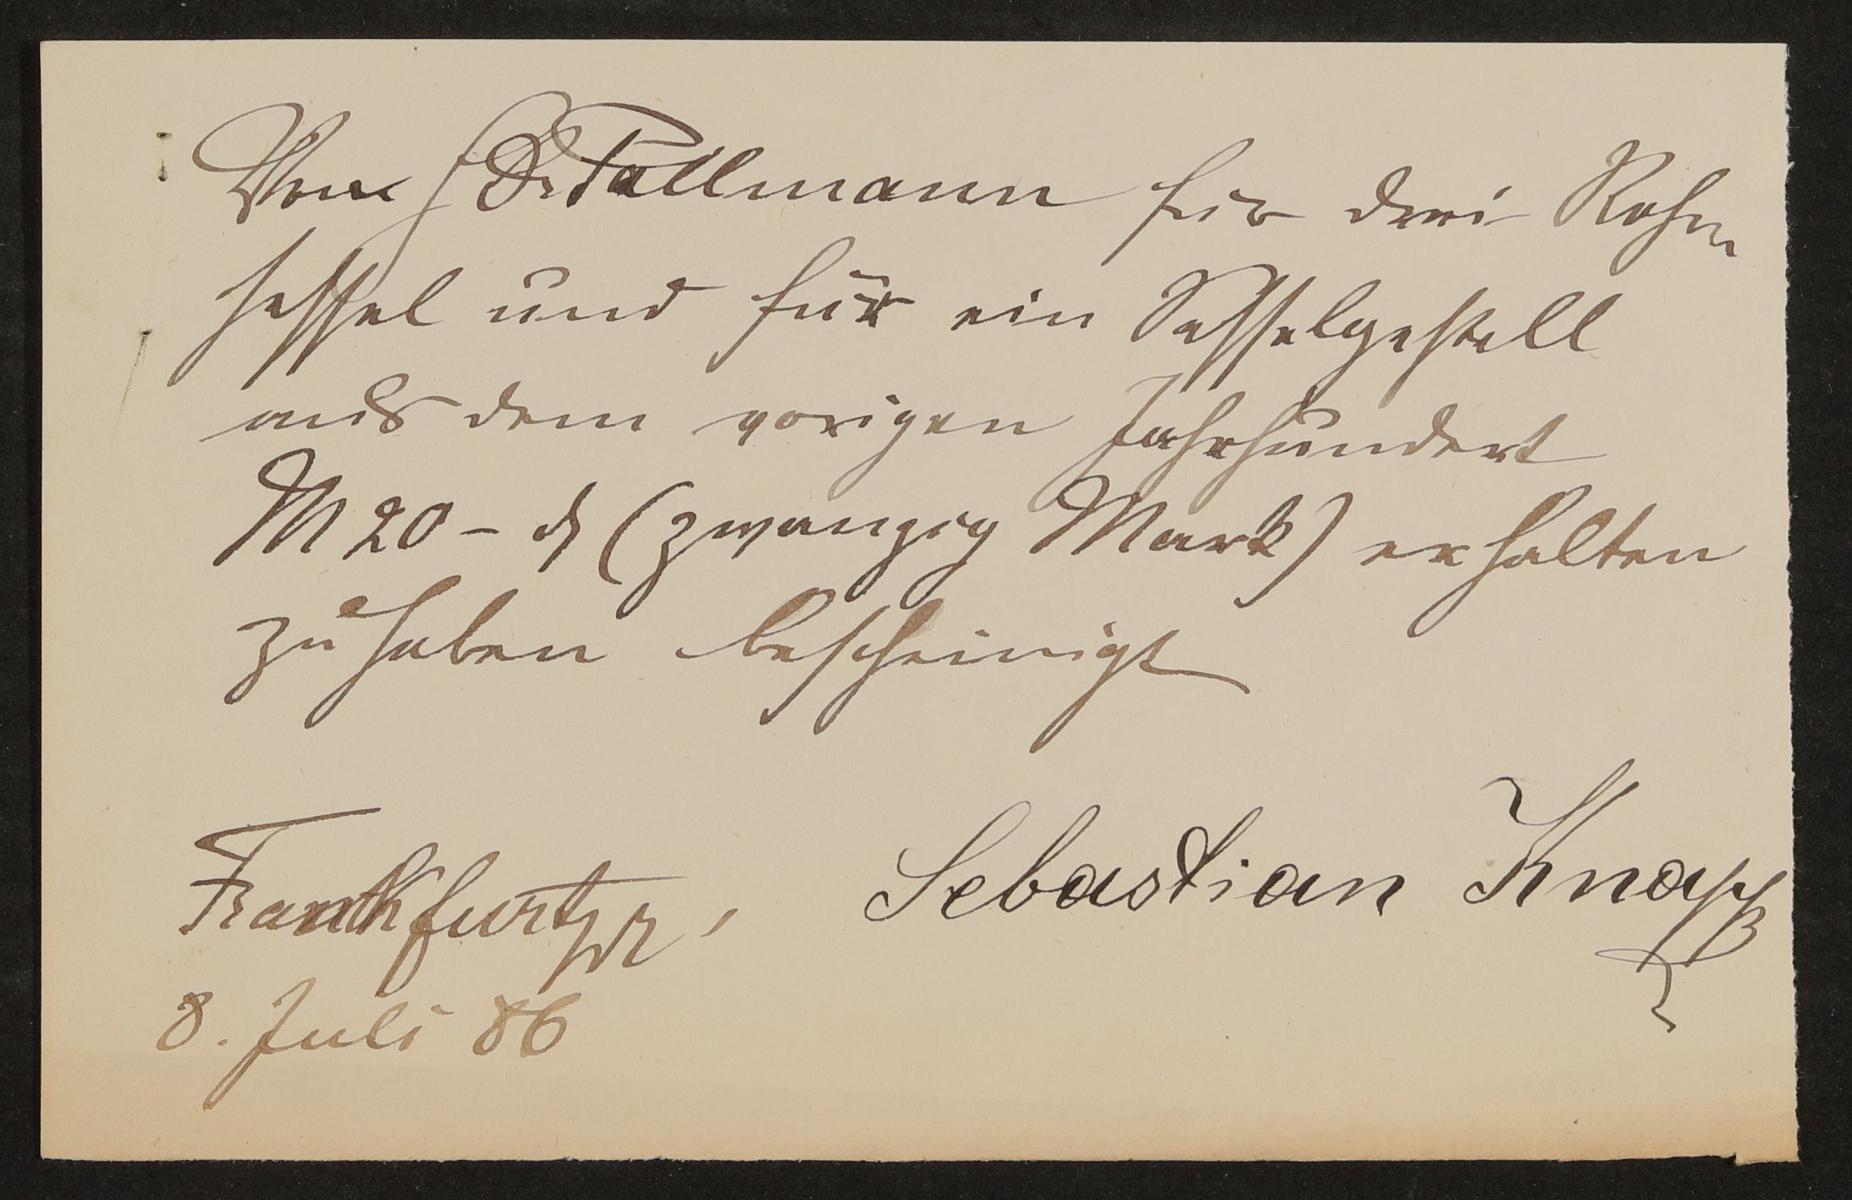 Von H Dr Pallmann für drei Rohr
sessel und für ein Sesselgestell
aus dem vorigen Jahrhundert
M 20 – ₰ (zwanzig Mark) erhalten
zu haben bescheinigt
Sebastian Knapp
Frankfurt
8. Juli 86